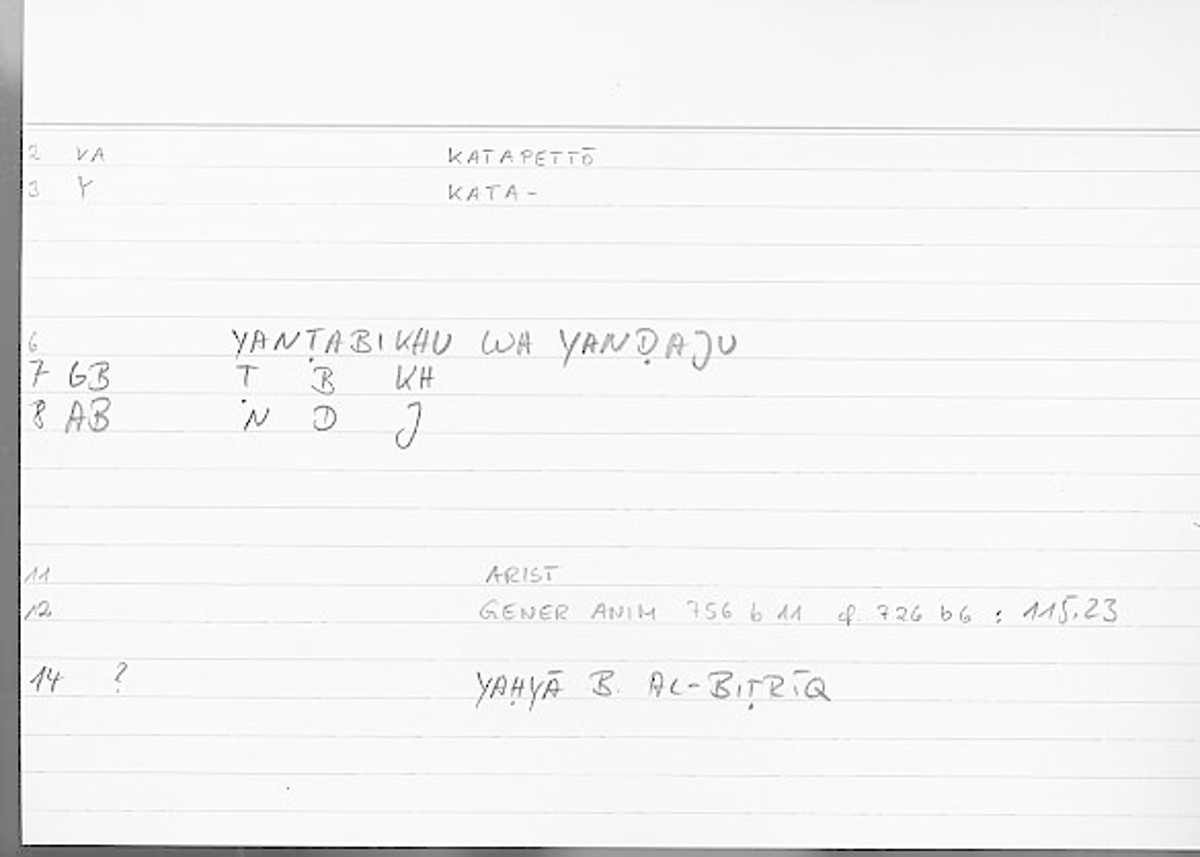 2 VA KATAPETTŌ
3 Y KATA-
6 YANṬABIKHU WA YANḌAJU
7 GB Ṭ B KH
8 AB N D J
11 ARIST
12 GENER ANIM 756 b 11 cf. 726 b6 : 115,23
14 ? YAḤYĀ B. AL-BIṬRĪQ